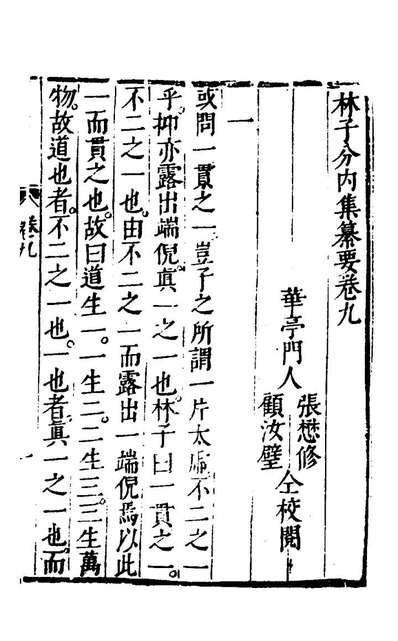 林子分内集纂要卷九
華亭門人 張懋修 顧汝璧 仝校閱
一
或問一貫之一豈子之所謂一片太虛不二之一
乎抑亦露出端倪眞一之一也林子曰一貫之一。
不二之一也由不二之一而露出一端倪焉以此
一而貫之也。故曰道生一。一生二。二生三。三生萬
物。故道也者。不二之一也。一也者眞一之一也。而
卷九